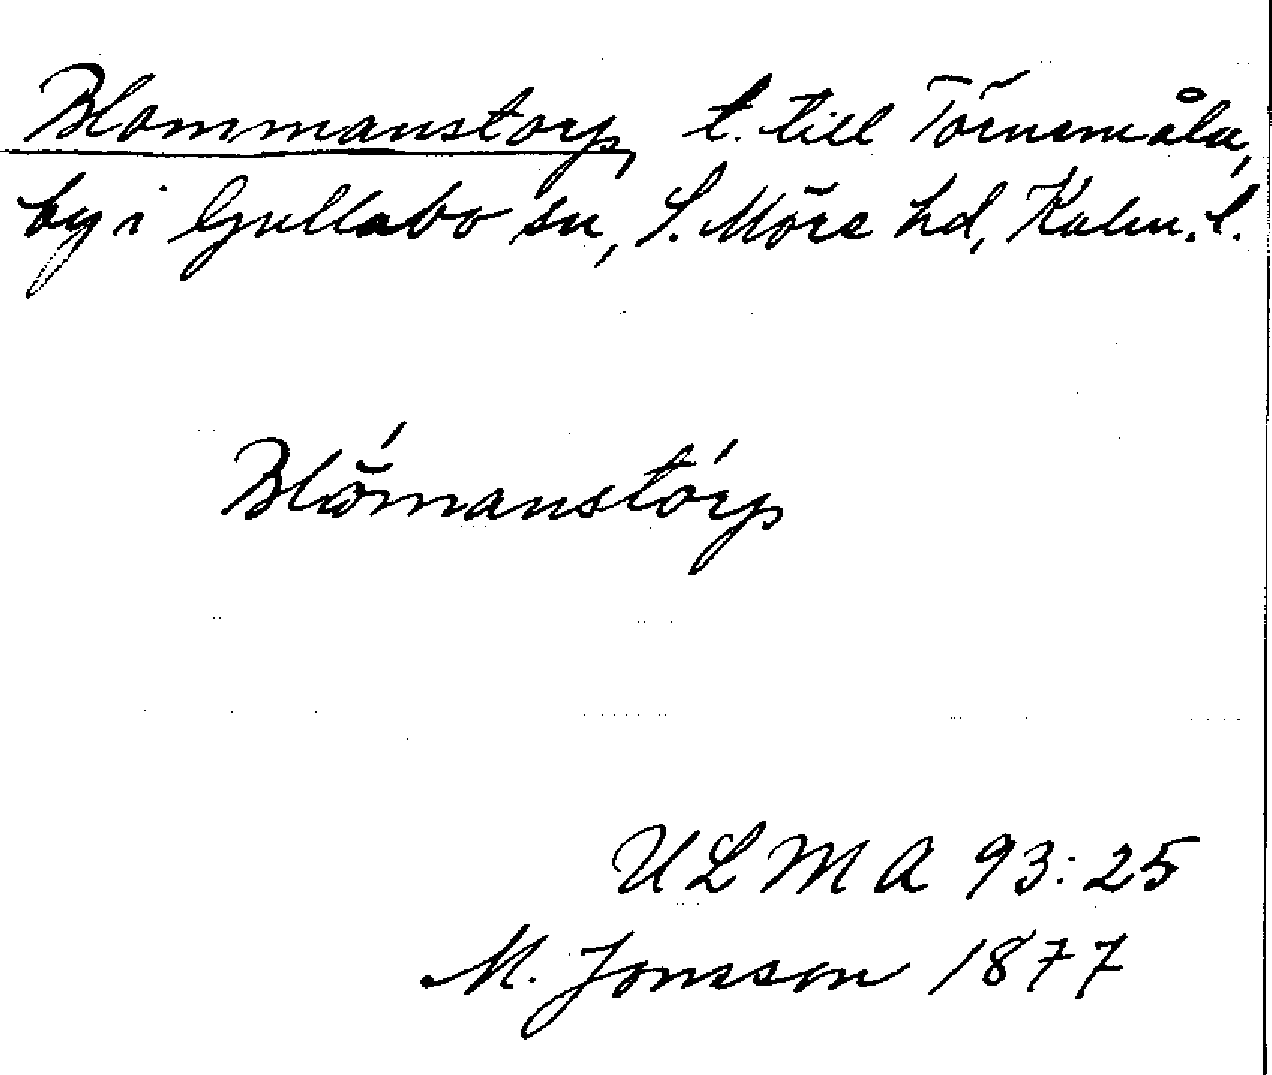 Blommanstorp, t. till Törnemåla,
by i Gullabo sn, S. Möre hd, Kalm. l.
Blŏ́manstórp
ULMA 93:25
M. Jonsson 1877